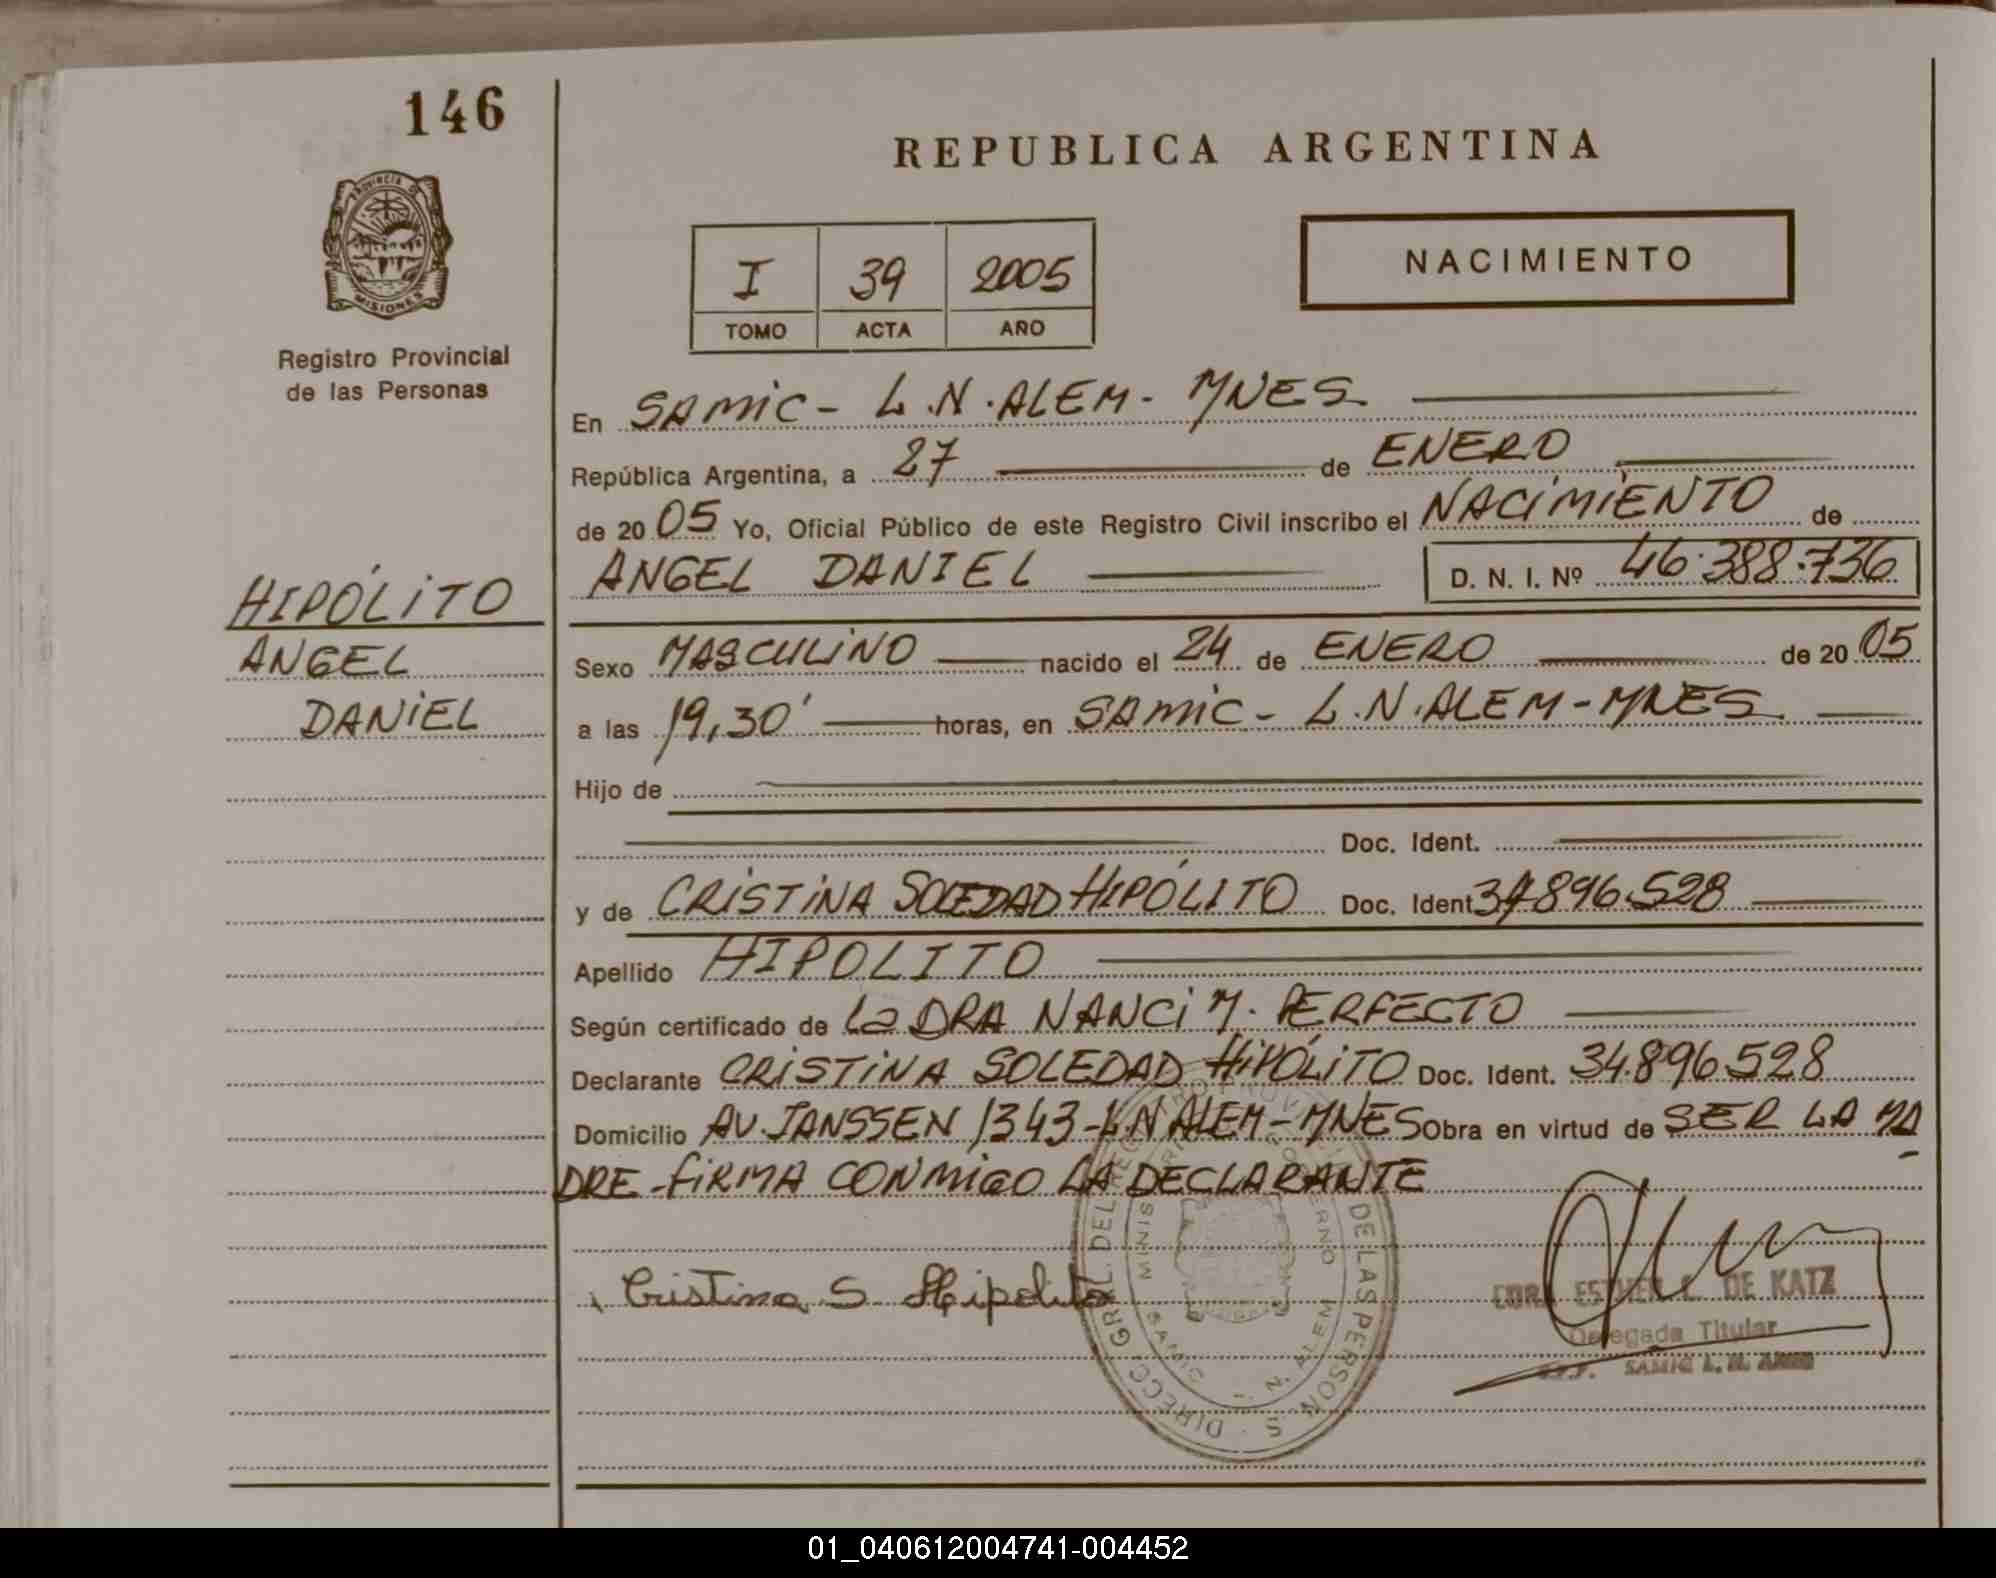 146
REPUBLICA ARGENTINA
PROVINCIA DE
MISIONES
NACIMIENTO
I 39 2005
TOMO ACTA AÑO
Registro Provincial
de las Personas
En SAMIC - L.N. ALEM - MNES
República Argentina, a 27 de ENERO
de 2005 Yo, Oficial Público de este Registro Civil inscribo el NACIMIENTO de
ANGEL DANIEL D. N. I. Nº 46.388.736
HIPÓLITO
ANGEL
DANIEL
Sexo MASCULINO nacido el 24 de ENERO de 2005
a las 19,30' horas, en SAMIC - L.N. ALEM - MNES
Hijo de
Doc. Ident.
y de CRISTINA SOLEDAD HIPÓLITO Doc. Ident 34896.528
Apellido HIPOLITO
Según certificado de La DRA NANCI M. PERFECTO
Declarante CRISTINA SOLEDAD HIPÓLITO Doc. Ident. 34.896.528
Domicilio AV. JANSSEN 1343 - L.N ALEM - MNES Obra en virtud de SER LA MA
DRE - FIRMA CONMIGO LA DECLARANTE
Cristina S. Hipolito
ESTHER L. DE KATZ
Delegada Titular
SAMIC L. N.
DIRECC. GRAL. DEL DE LAS PERSON S
SAMIC L. N. ALEM
01_040612004741-004452